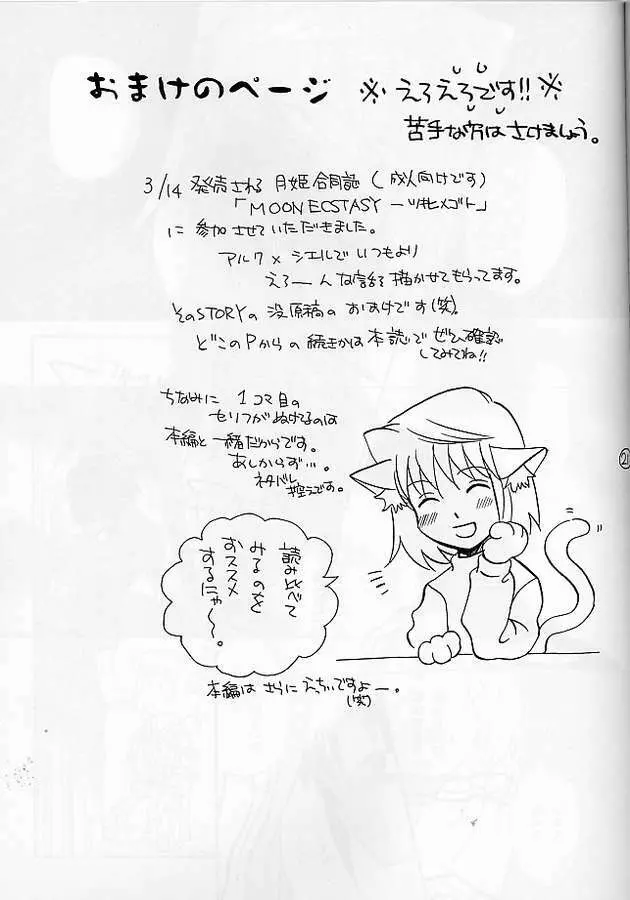 おまけのページ ※えろえろです!!※
苦手な方はさけましょう。
3/14 発売される 月姫合同誌(成人向けです)
「MOON ECSTASY ーツキヒメゴト」
に 参加させていただきました。
アルク×シエルで いつもより
えろーんな話を描かせてもらってます。
そのSTORYの 没原稿の おまけです(笑)
どこのPからの 続きかは 本読いで ぜひ確認
してみてね!!
ちなみに 1コマ目の
セリフがぬけてるのは
本編と一緒だからです。
あしからず…。
ネタバレ
控えです。
読み比べて
みるのを
おススメ
するにゃ〜〜。
本編は さらに えっちぃですよー。
(笑)
2